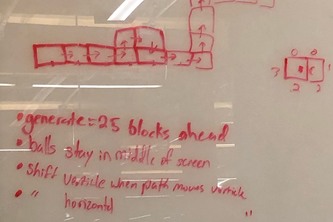 0 0
3 1
2 2
• generate = 25 blocks ahead
• balls stay in middle of screen
• shift verticle when path moves verticle
• " horizontal "